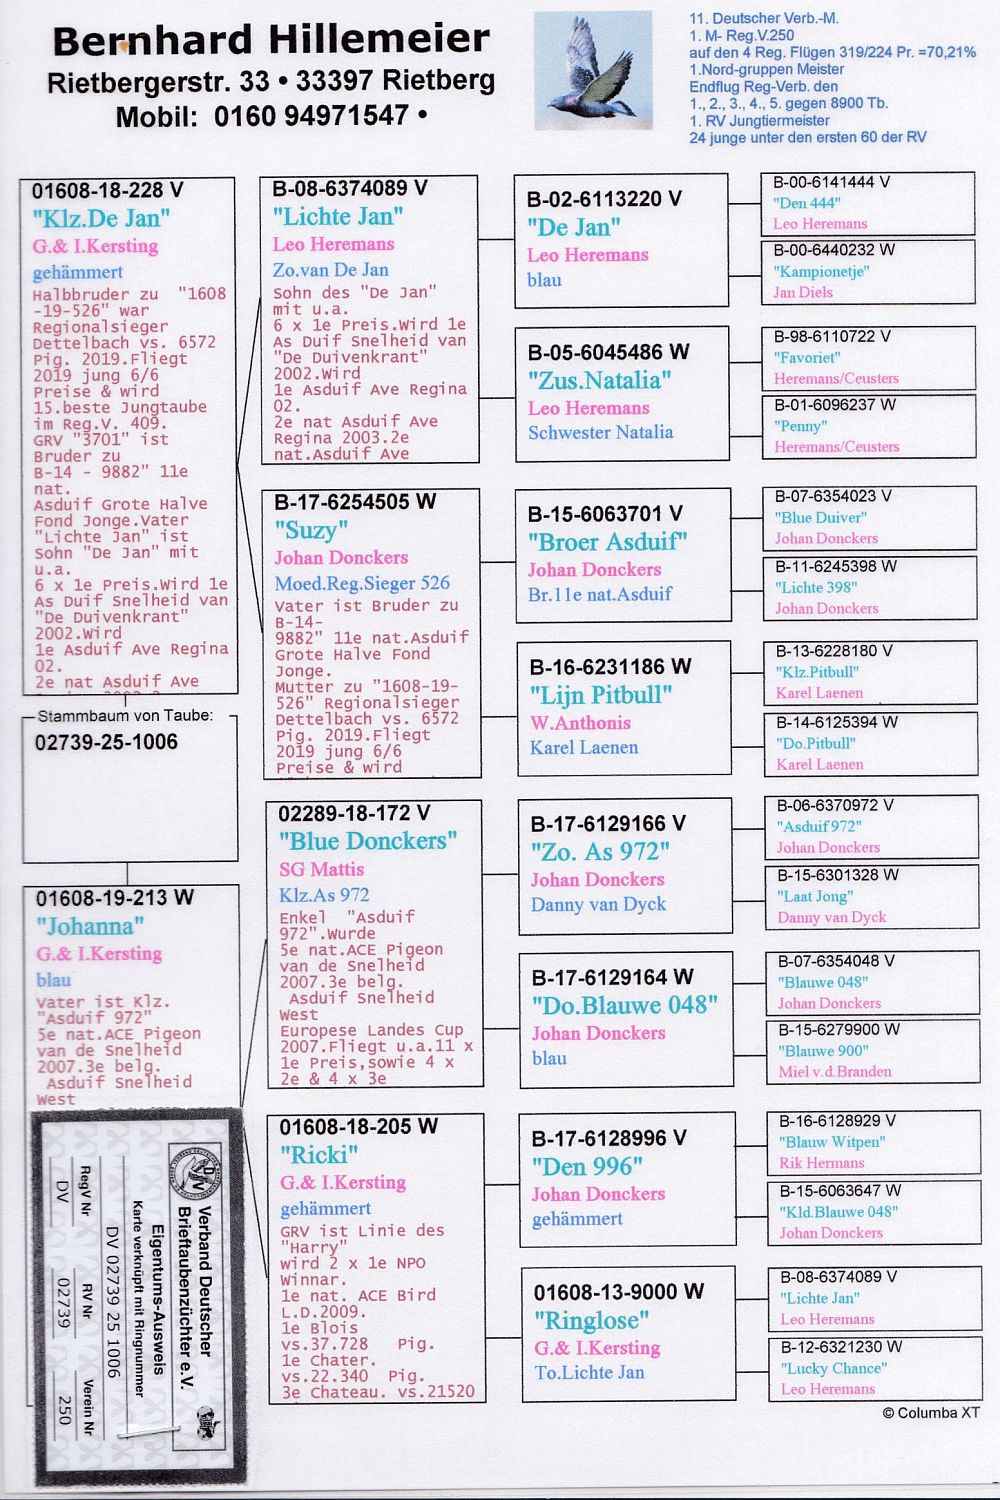 Bernhard Hillemeier
Rietbergerstr. 33 • 33397 Rietberg
Mobil: 0160 94971547 •
11. Deutscher Verb.-M.
1. M- Reg.V.250
auf den 4 Reg. Flügen 319/224 Pr. =70,21%
1.Nord-gruppen Meister
Endflug Reg-Verb. den
1., 2., 3., 4., 5. gegen 8900 Tb.
1. RV Jungtiermeister
24 junge unter den ersten 60 der RV
01608-18-228 V
"Klz.De Jan"
G.& I.Kersting
gehämmert
Halbbruder zu "1608
-19-526" war
Regionalsieger
Dettelbach vs. 6572
Pig. 2019.Fliegt
2019 jung 6/6
Preise & wird
15.beste Jungtaube
im Reg.V. 409.
GRV "3701" ist
Bruder zu
B-14 - 9882" 11e
nat.
Asduif Grote Halve
Fond Jonge.Vater
"Lichte Jan" ist
Sohn "De Jan" mit
u.a.
6 x 1e Preis.Wird 1e
As Duif Snelheid van
"De Duivenkrant"
2002.Wird
1e Asduif Ave Regina
02.
2e nat Asduif Ave
Stammbaum von Taube:
02739-25-1006
01608-19-213 W
"Johanna"
G.& I.Kersting
blau
Vater ist Klz.
"Asduif 972"
5e nat.ACE Pigeon
van de Snelheid
2007.3e belg.
Asduif Snelheid
West
B-08-6374089 V
"Lichte Jan"
Leo Heremans
Zo.van De Jan
Sohn des "De Jan"
mit u.a.
6 x 1e Preis.Wird 1e
As Duif Snelheid van
"De Duivenkrant"
2002.Wird
1e Asduif Ave Regina
02.
2e nat Asduif Ave
Regina 2003.2e
nat.Asduif Ave
B-17-6254505 W
"Suzy"
Johan Donckers
Moed.Reg.Sieger 526
Vater ist Bruder zu
B-14-
9882" 11e nat.Asduif
Grote Halve Fond
Jonge.
Mutter zu "1608-19-
526" Regionalsieger
Dettelbach vs. 6572
Pig. 2019.Fliegt
2019 jung 6/6
Preise & wird
02289-18-172 V
"Blue Donckers"
SG Mattis
Klz.As 972
Enkel "Asduif
972".Wurde
5e nat.ACE Pigeon
van de Snelheid
2007.3e belg.
Asduif Snelheid
West
Europese Landes Cup
2007.Fliegt u.a.11 x
1e Preis,sowie 4 x
2e & 4 x 3e
01608-18-205 W
"Ricki"
G.& I.Kersting
gehämmert
GRV ist Linie des
"Harry"
wird 2 x 1e NPO
Winnar.
1e nat. ACE Bird
L.D.2009.
1e Blois
vs.37.728 Pig.
1e Chater.
vs.22.340 Pig.
3e Chateau. vs.21520
B-02-6113220 V
"De Jan"
Leo Heremans
blau
B-05-6045486 W
"Zus.Natalia"
Leo Heremans
Schwester Natalia
B-15-6063701 V
"Broer Asduif"
Johan Donckers
Br.11e nat.Asduif
B-16-6231186 W
"Lijn Pitbull"
W.Anthonis
Karel Laenen
B-17-6129166 V
"Zo. As 972"
Johan Donckers
Danny van Dyck
B-17-6129164 W
"Do.Blauwe 048"
Johan Donckers
blau
B-17-6128996 V
"Den 996"
Johan Donckers
gehämmert
01608-13-9000 W
"Ringlose"
G.& I.Kersting
To.Lichte Jan
B-00-6141444 V
"Den 444"
Leo Heremans
B-00-6440232 W
"Kampionetje"
Jan Diels
B-98-6110722 V
"Favoriet"
Heremans/Ceusters
B-01-6096237 W
"Penny"
Heremans/Ceusters
B-07-6354023 V
"Blue Duiver"
Johan Donckers
B-11-6245398 W
"Lichte 398"
Johan Donckers
B-13-6228180 V
"Klz.Pitbull"
Karel Laenen
B-14-6125394 W
"Do.Pitbull"
Karel Laenen
B-06-6370972 V
"Asduif 972"
Johan Donckers
B-15-6301328 W
"Laat Jong"
Danny van Dyck
B-07-6354048 V
"Blauwe 048"
Johan Donckers
B-15-6279900 W
"Blauwe 900"
Miel v.d.Branden
B-16-6128929 V
"Blauw Witpen"
Rik Hermans
B-15-6063647 W
"Kld.Blauwe 048"
Johan Donckers
B-08-6374089 V
"Lichte Jan"
Leo Heremans
B-12-6321230 W
"Lucky Chance"
Leo Heremans
© Columba XT
Verband Deutscher
Brieftaubenzüchter e.V.
Eigentums-Ausweis
Karte verknüpft mit Ringnummer
DV 02739 25 1006
RegV Nr RV Nr Verein Nr
DV 02739 250